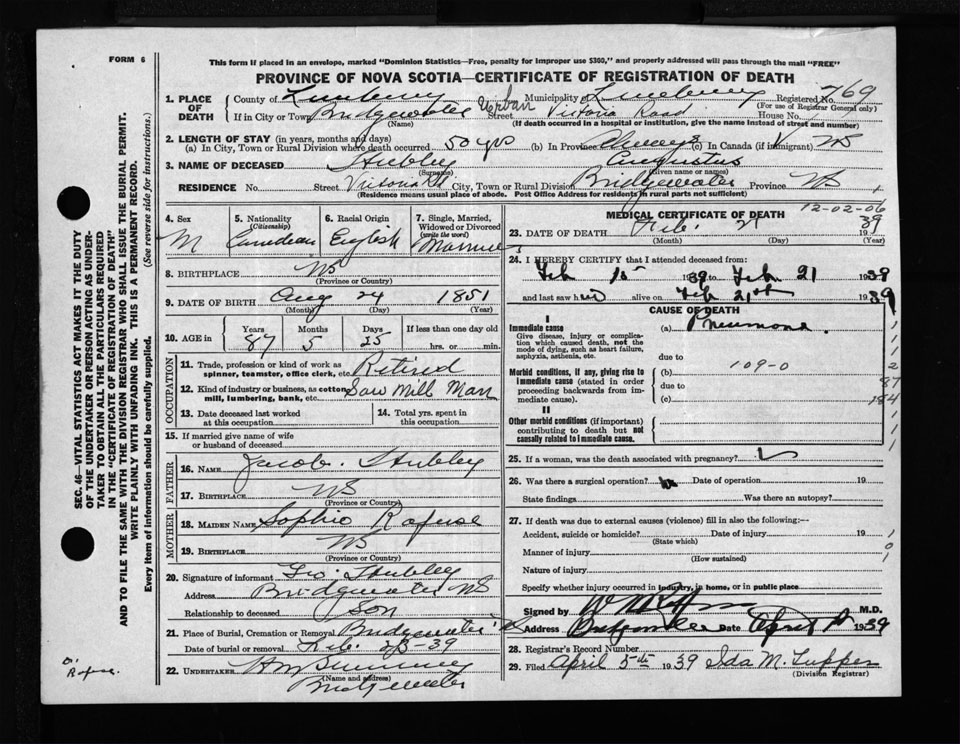 FORM 6
This form if placed in an envelope, marked "Dominion Statistics—Free, penalty for improper use $300," and properly addressed will pass through the mail "FREE"
PROVINCE OF NOVA SCOTIA—CERTIFICATE OF REGISTRATION OF DEATH
1. PLACE OF DEATH County of Lunenburg Municipality of Lunenburg Registered No. 769
(For use of Registrar General only)
If in City or Town Bridgewater Urban Street Victoria Road House No.
(Name) (If death occurred in a hospital or institution, give the name instead of street and number)
2. LENGTH OF STAY (in years, months and days)
(a) In City, Town or Rural Division where death occurred 50 yrs (b) In Province Always (c) In Canada (if immigrant) NS
3. NAME OF DECEASED Hubley Augustus
(Surname) (Given name or names)
RESIDENCE No. Street Victoria Rd City, Town or Rural Division Bridgewater Province NS
(Residence means usual place of abode. Post Office Address for residents in rural parts not sufficient)
4. Sex M
5. Nationality (Citizenship) Canadian
6. Racial Origin English
7. Single, Married, Widowed or Divorced (write the word) Married
8. BIRTHPLACE NS
(Province or Country)
9. DATE OF BIRTH Aug 24 1851
(Month) (Day) (Year)
10. AGE in Years 87 Months 5 Days 25 If less than one day old hrs. or min.
OCCUPATION
11. Trade, profession or kind of work as spinner, teamster, office clerk, etc. Retired
12. Kind of industry or business, as cotton mill, lumbering, bank, etc. Saw Mill Man
13. Date deceased last worked at this occupation
14. Total yrs. spent in this occupation
15. If married give name of wife or husband of deceased
FATHER
16. NAME Jacob Hubley
17. BIRTHPLACE NS
(Province or Country)
MOTHER
18. MAIDEN NAME Sophia Rafuse
19. BIRTHPLACE NS
(Province or Country)
20. Signature of informant Geo. Hubley
Address Bridgewater NS
Relationship to deceased Son
21. Place of Burial, Cremation or Removal Bridgewater
Date of burial or removal Feb. 23-39
22. UNDERTAKER
(Name and address)
Bridgewater
MEDICAL CERTIFICATE OF DEATH
12-02-06
23. DATE OF DEATH Feb. 21 1939
(Month) (Day) (Year)
24. I HEREBY CERTIFY that I attended deceased from:
Feb 15 1939 to Feb 21 1939
and last saw him alive on Feb 21st 1939
CAUSE OF DEATH
I
Immediate cause (a) Pneumonia.
Give disease, injury or complication which caused death, not the mode of dying, such as heart failure, asphyxia, asthenia, etc.
due to
109-0
Morbid conditions, if any, giving rise to immediate cause (stated in order proceeding backwards from immediate cause).
(b)
due to
(c)
87
184
II
Other morbid conditions (if important) contributing to death but not causally related to immediate cause.
25. If a woman, was the death associated with pregnancy?
26. Was there a surgical operation? No Date of operation 19
State findings Was there an autopsy?
27. If death was due to external causes (violence) fill in also the following:—
Accident, suicide or homicide? Date of injury 19
(State which)
Manner of injury
(How sustained)
Nature of injury
Specify whether injury occurred in industry, in home, or in public place
Signed by M.D.
Address Date April 1939
28. Registrar's Record Number
29. Filed April 5th 1939 Ida M. Tupper
(Division Registrar)
SEC. 46—VITAL STATISTICS ACT MAKES IT THE DUTY
OF THE UNDERTAKER OR PERSON ACTING AS UNDER-
TAKER TO OBTAIN ALL THE PARTICULARS REQUIRED
IN THE "CERTIFICATE OF REGISTRATION OF DEATH"
AND TO FILE THE SAME WITH THE DIVISION REGISTRAR WHO SHALL ISSUE THE BURIAL PERMIT.
WRITE PLAINLY WITH UNFADING INK. THIS IS A PERMANENT RECORD.
Every item of information should be carefully supplied. (See reverse side for instructions.)
Rafuse.